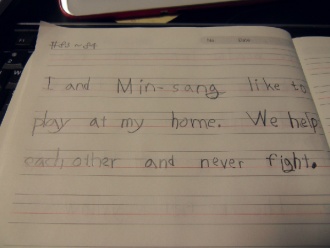 I and Min-sang like to
play at my home. We help
each other and never fight.